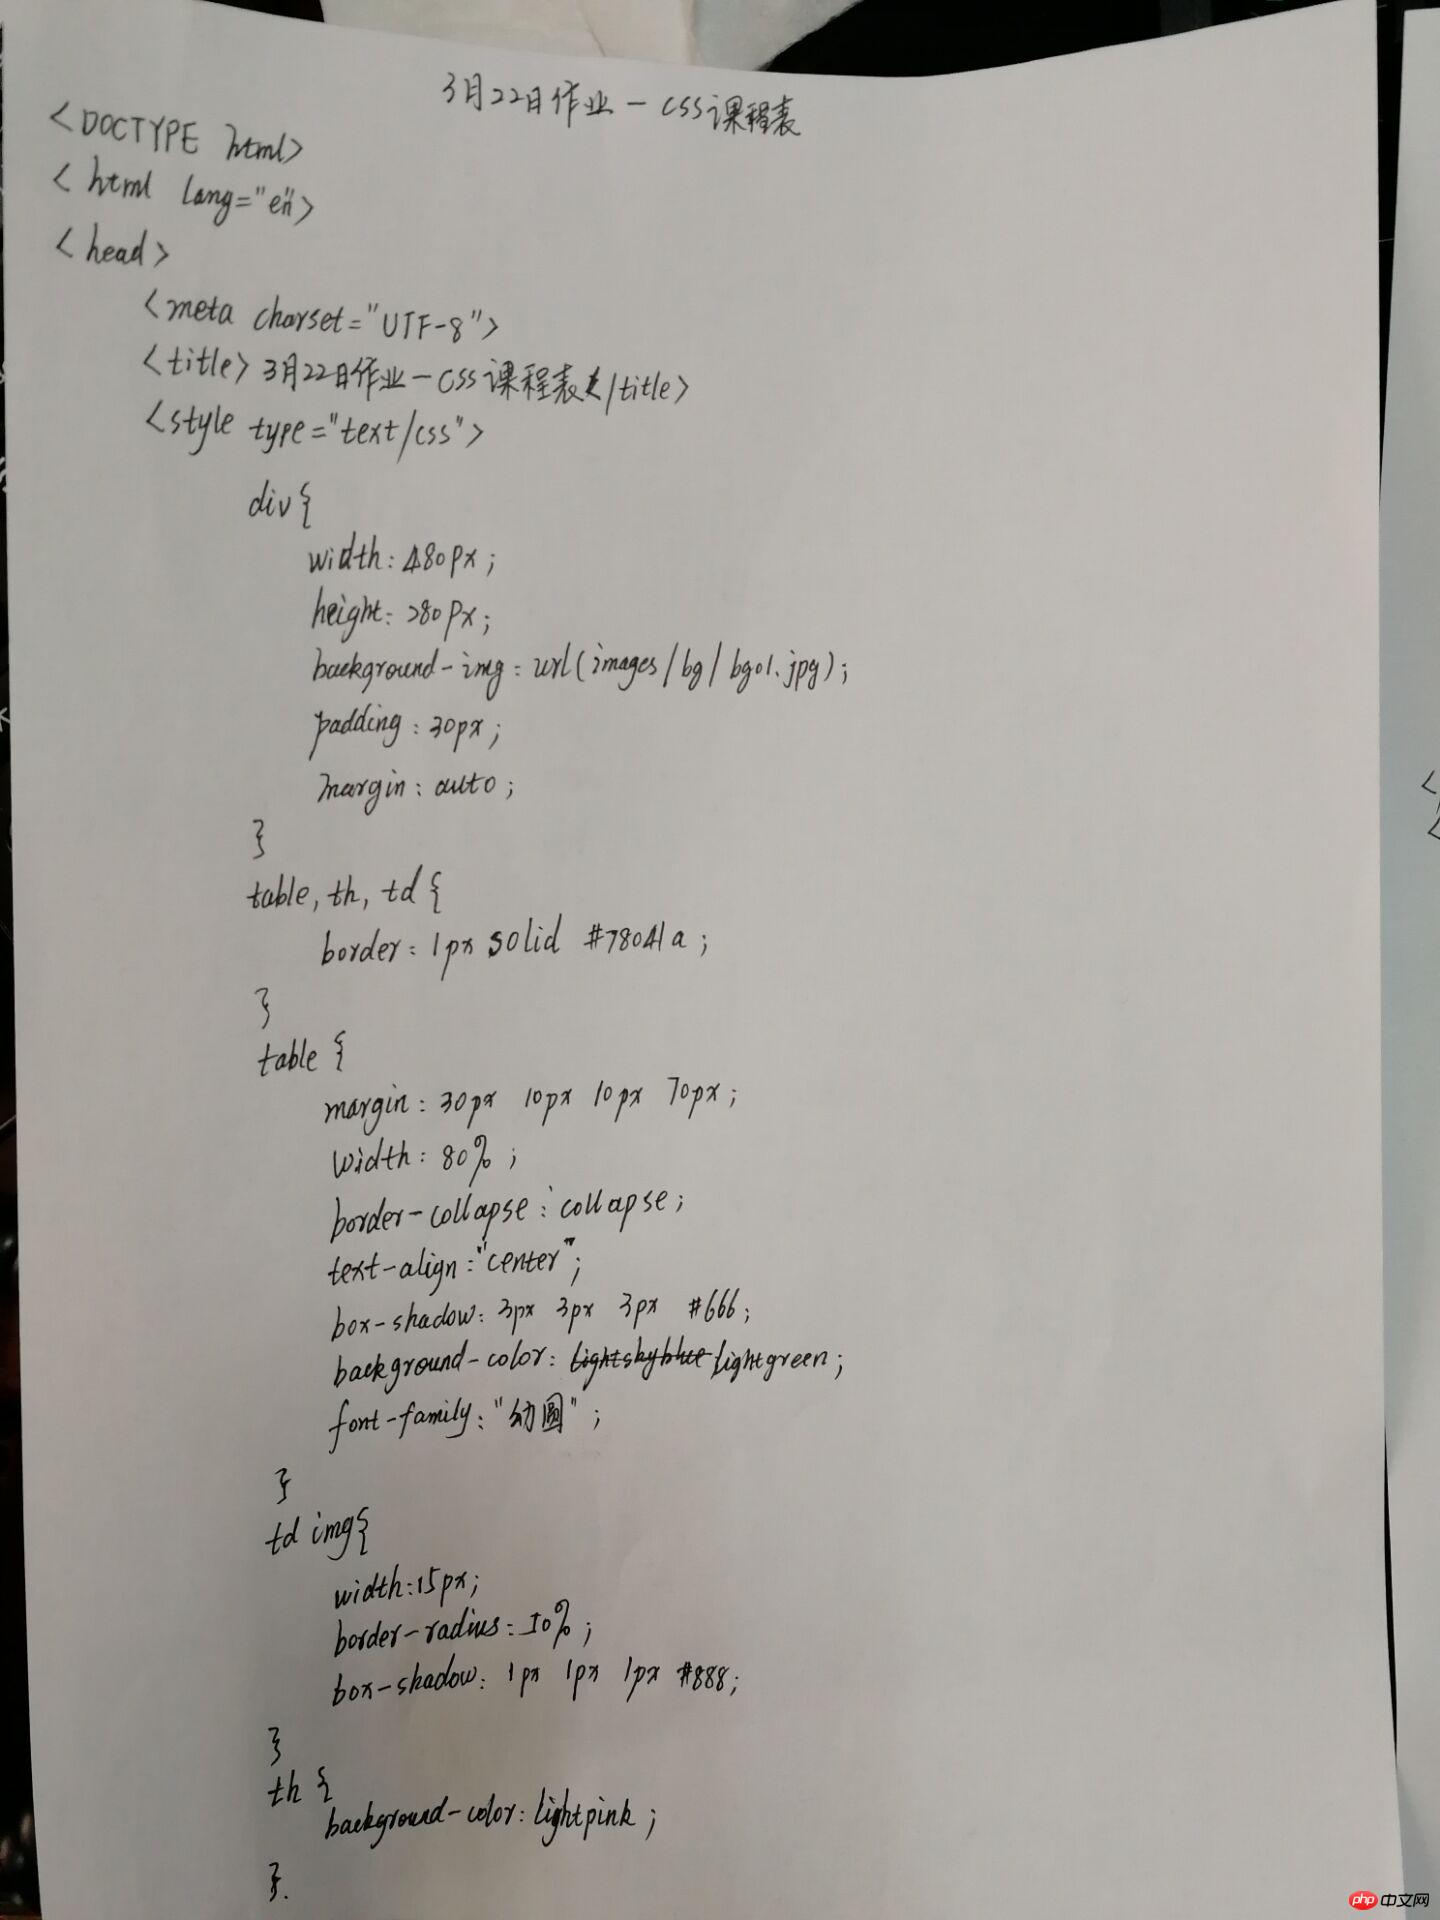 3月22日作业-CSS课程表
<DOCTYPE html>
<html lang="en">
<head>
<meta charset="UTF-8">
<title>3月22日作业-CSS课程表</title>
<style type="text/css">
div{
width:480px;
height:280px;
background-img:url(images/bg/bg01.jpg);
padding:30px;
margin:auto;
}
table,th,td{
border:1px solid #78041a;
}
table{
margin:30px 10px 10px 70px;
width:80%;
border-collapse:collapse;
text-align:"center";
box-shadow:3px 3px 3px #666;
background-color:lightskyblue lightgreen;
font-family:"幼圆";
}
td img{
width:15px;
border-radius:50%;
box-shadow:1px 1px 1px #888;
}
th{
background-color:lightpink;
}.
php 中文网